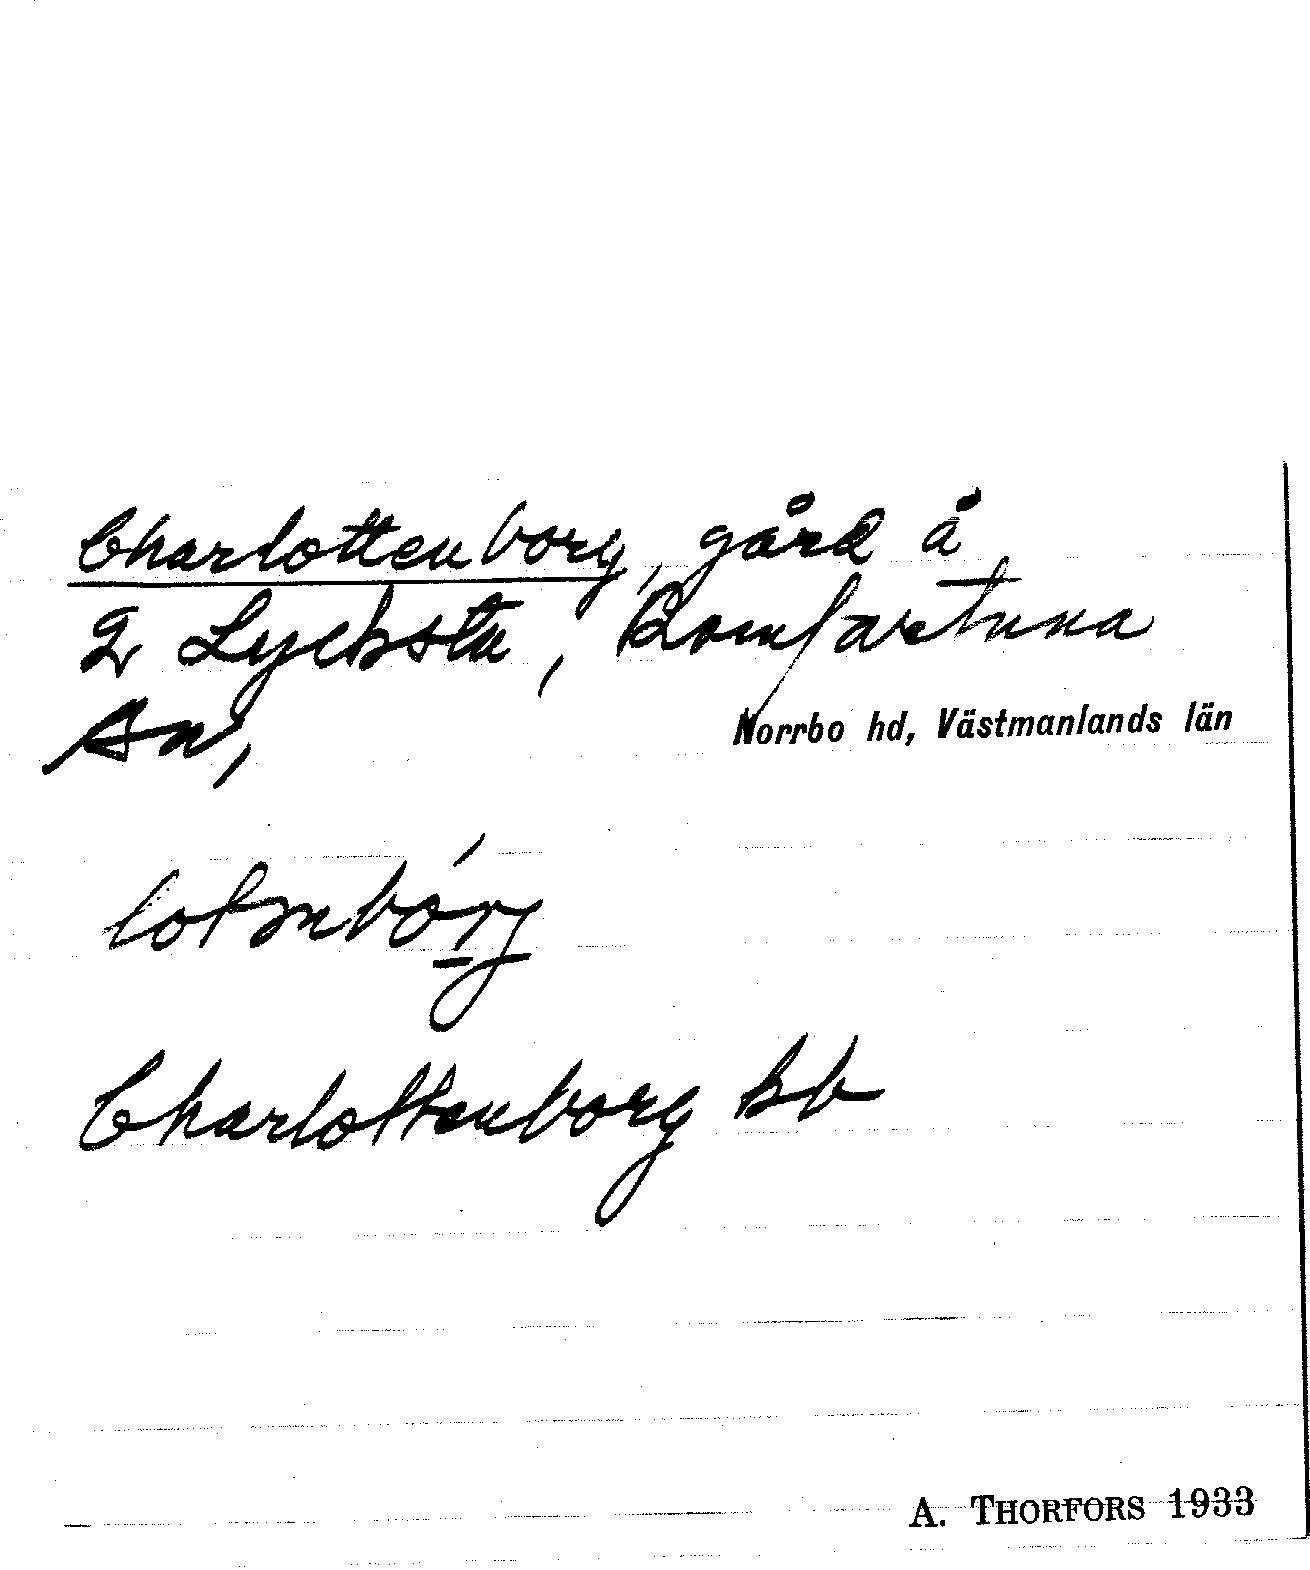 Charlottenborg, gård å
2 Lycksta, Romfartuna
sn,
Norrbo hd, Västmanlands län
Charlottenborg kb
A. THORFORS 1933